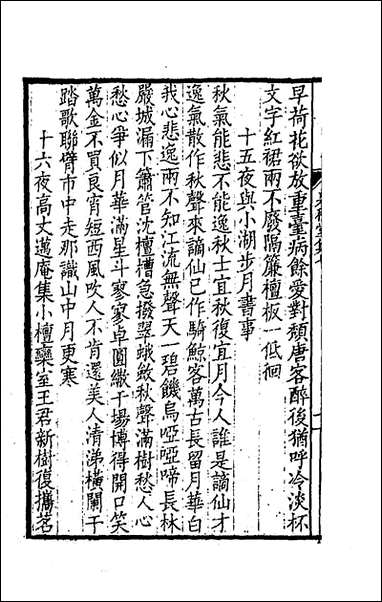 早荷花欲放重臺病餘愛對頹唐客醉後猶呼冷淡杯
文字紅裙兩不廢隔簾檀板一低徊
十五夜與小湖步月書事
秋氣能悲不能逸秋士宜秋復宜月今人誰是謫仙才
逸氣散作秋聲來謫仙已作騎鯨客萬古長留月華白
我心悲逸兩不知江流無聲天一碧饑烏啞啞啼長林
嚴城漏下簫管沈檀槽急撥翠蛾斂秋聲滿樹愁人心
愁心爭似月華滿星斗寥寥卓圓繖千場博得開口笑
萬金不買良宵短西風吹人不肯還美人清涕橫闌干
踏歌聯臂市中走那識山中月更寒
十六夜高丈邁庵集小檀欒室王君新樹復攜茗